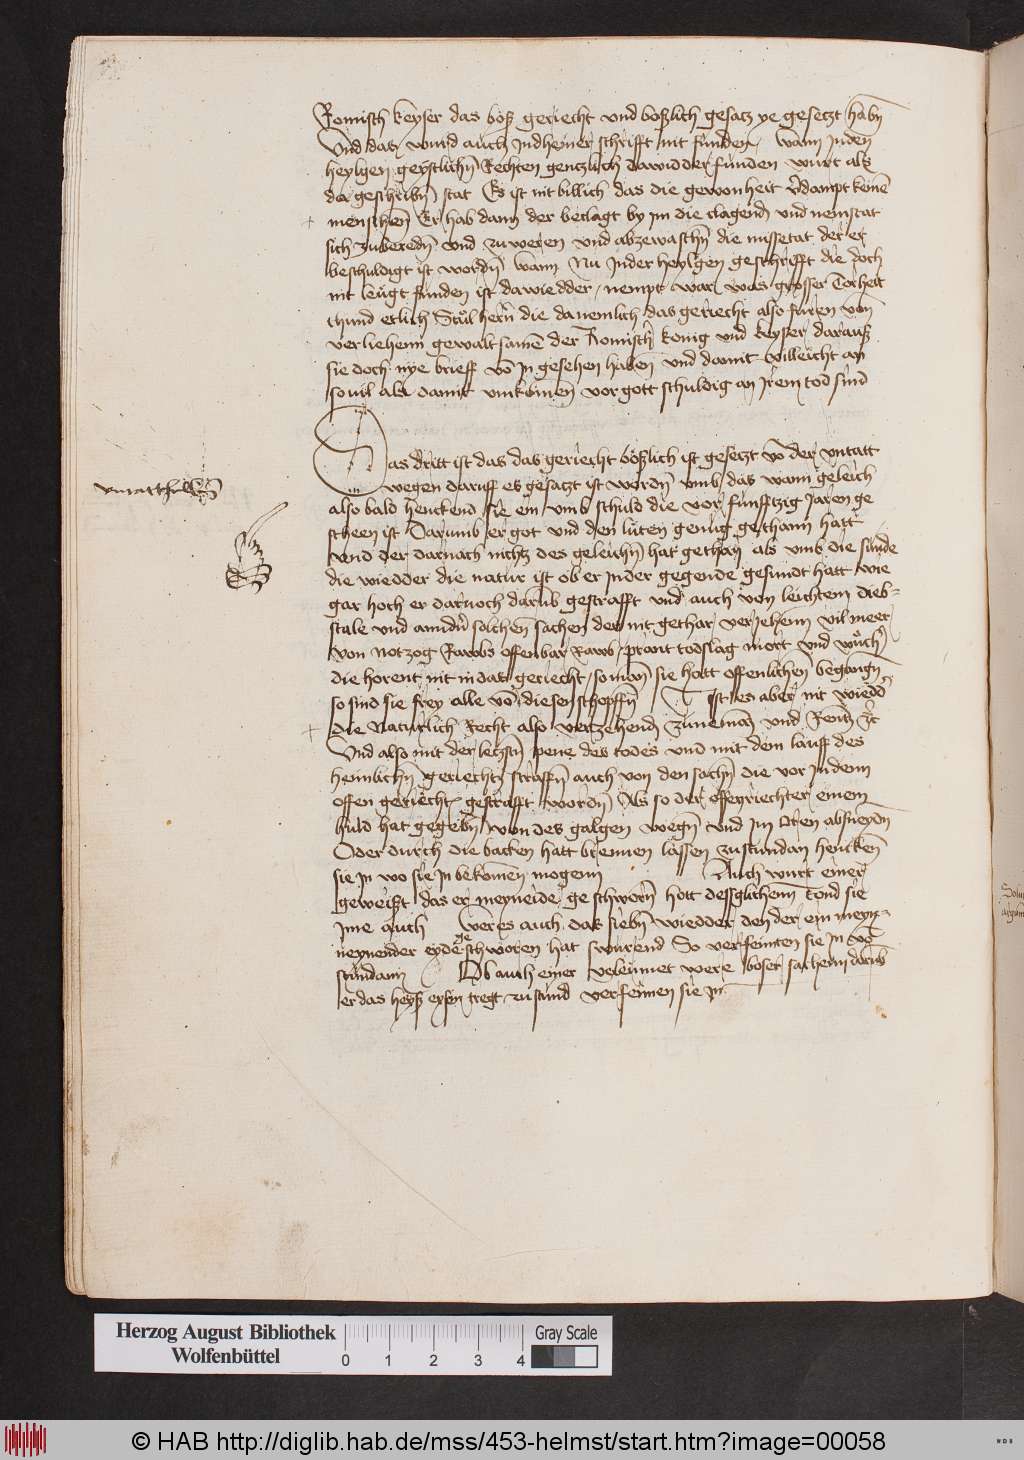 Romisch keyser das böß geriecht vnd boßlich gesatz ye gesetzt habn̄
Vnd daz wurd auch Jndheiner schrifft nit funden, wann Jnden
heylgen geystlichn̄ Rechten gentzlich dawidder funden wurt als
da geschribn̄ stat Es ist nit billich das die gewonheit v̄dampt keinē
menschen Er hab dann der beclagt by jm die clagend̄ vnd neinstat
sich zuberedn̄ vnd zuweren vnd abzewaschn̄ die missetat der er
beschuldigt ist wordn̄ wann Nu Jnder heylgen geschrifft die doch
nit leugt funden ist dawiedder, nempt war was grosser Torheit
thund etlich Stůl hern̄ die da nemlich das geriecht also furen von
verliehenn gewaltsamē der Romisch konig vnd keysser darauß
sie doch nye brieff vō jn gesehen haben vnd damit villeicht an
souil als damit vmkomen vor gott schuldig an Jrem tod sind
Das dritt ist das das geriecht boßlich ist gesetzt vō der vntatt
wegen daruff es gesatzt ist wordn̄ vmb das wann geleich
also bald henckend sie ein vmb schuld die vor funfftzig Jaren ge
scheen ist Darumb er got vnd den lůten genug gethann hatt
vnd der darnach nichtz des geleichn̄ hat gethan als vmb die sunde
die wiedder die natur ist ob er Jnder gegende gesundt hatt wie
gar hoch er darnoch darūb gestrafft vnd auch von leichtem dieb-
stale vnd anndn̄ solchen sachen der nit gethar verjehenn vil meer
von notzog Rawbs offenbar rawb, prant todslag mort vnd wůchr̄
die horent nit in dati geriecht, so wen̄ sie hatt offenlichen begangn̄
so sind sie frey alle vō diesen schopffn̄ Jst es aber nit wiedd̄
die Naturlich Recht also vertzehend zunemen vnd Rent, &c
Vnd also mit der letzstn̄ pene des todes vnd mit dem lauff des
heimlichn̄ geriechtz straffn̄ auch von den sachn̄ die vor jndem
offen geriecht gestrafft wordn̄ Als so der offenriechter einem
huld hat gegebn̄ von des galgen wegn̄ vnd jm Oren absneydn̄
Oder durch die backen hatt brennen lassen zustundan hencken
sie jn wo sie jn bekomen mogenn Auch wurt einer
geweist das er meyneide geschworn̄ hott dessglichenn tond sie
jme auch Wer es auch das siebn̄ wiedder den der ein meyn-
neynender eyde geschworen hat swurend So verfemten sie jn vō
stundann Ob auch einer veleumet were boser sachenn darūb
er das heyß eysen tregt zustund verfemen sie jn
Herzog August Bibliothek
Wolfenbüttel
0 1 2 3 4
Gray Scale
© HAB http://diglib.hab.de/mss/453-helmst/start.htm?image=00058